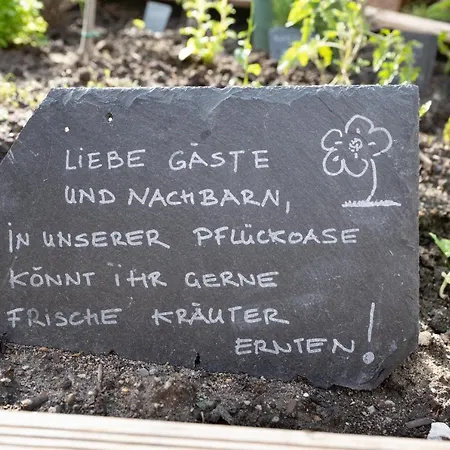 LIEBE GÄSTE
UND NACHBARN,
IN UNSERER PFLÜCKOASE
KÖNNT IHR GERNE
FRISCHE KRÄUTER
ERNTEN!